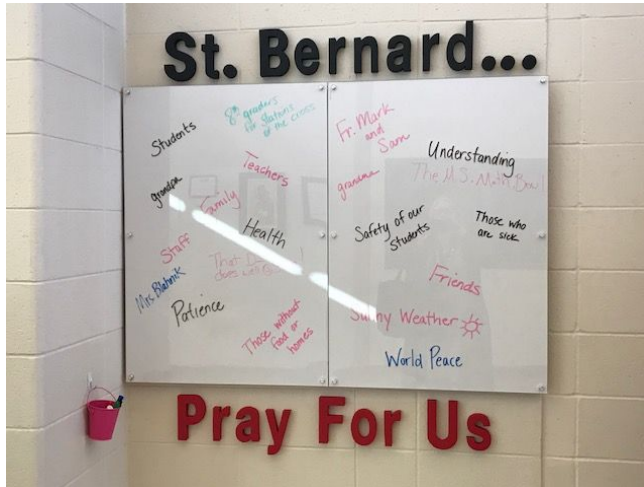 St. Bernard...
Students
8th graders
for Stations
of the Cross
Teachers
grandpa
Family
Health
Staff
does well
Mrs. Blahnik
Patience
Those without
food or
homes
Fr. Mark
and
Sam
Understanding
The M.S. Math Bowl
grandma
Safety of our
Students
Those who
are sick
Friends
Sunny Weather
World Peace
Pray For Us